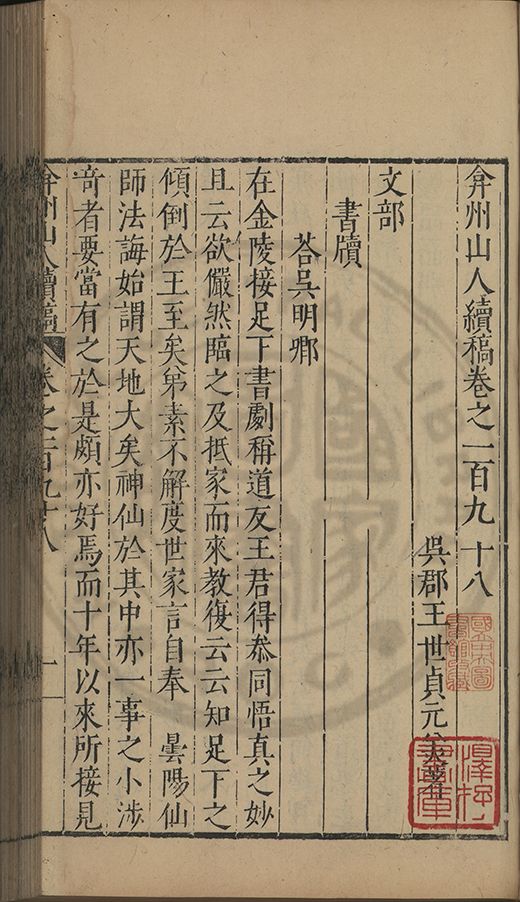 弇州山人續稿卷之一百九十八
吳郡王世貞元美著
文部
書牘
荅吳明卿
在金陵接足下書劇稱道友王君得叅同悟真之妙
且云欲儼然臨之及抵家而來教復云云知足下之
傾倒於王至矣弟素不解度世家言自奉　曇陽仙
師法誨始謂天地大矣神仙於其中亦一事之小涉
竒者要當有之於是頗亦好焉而十年以來所接見
弇州山人續稿
卷之一百九十八
一